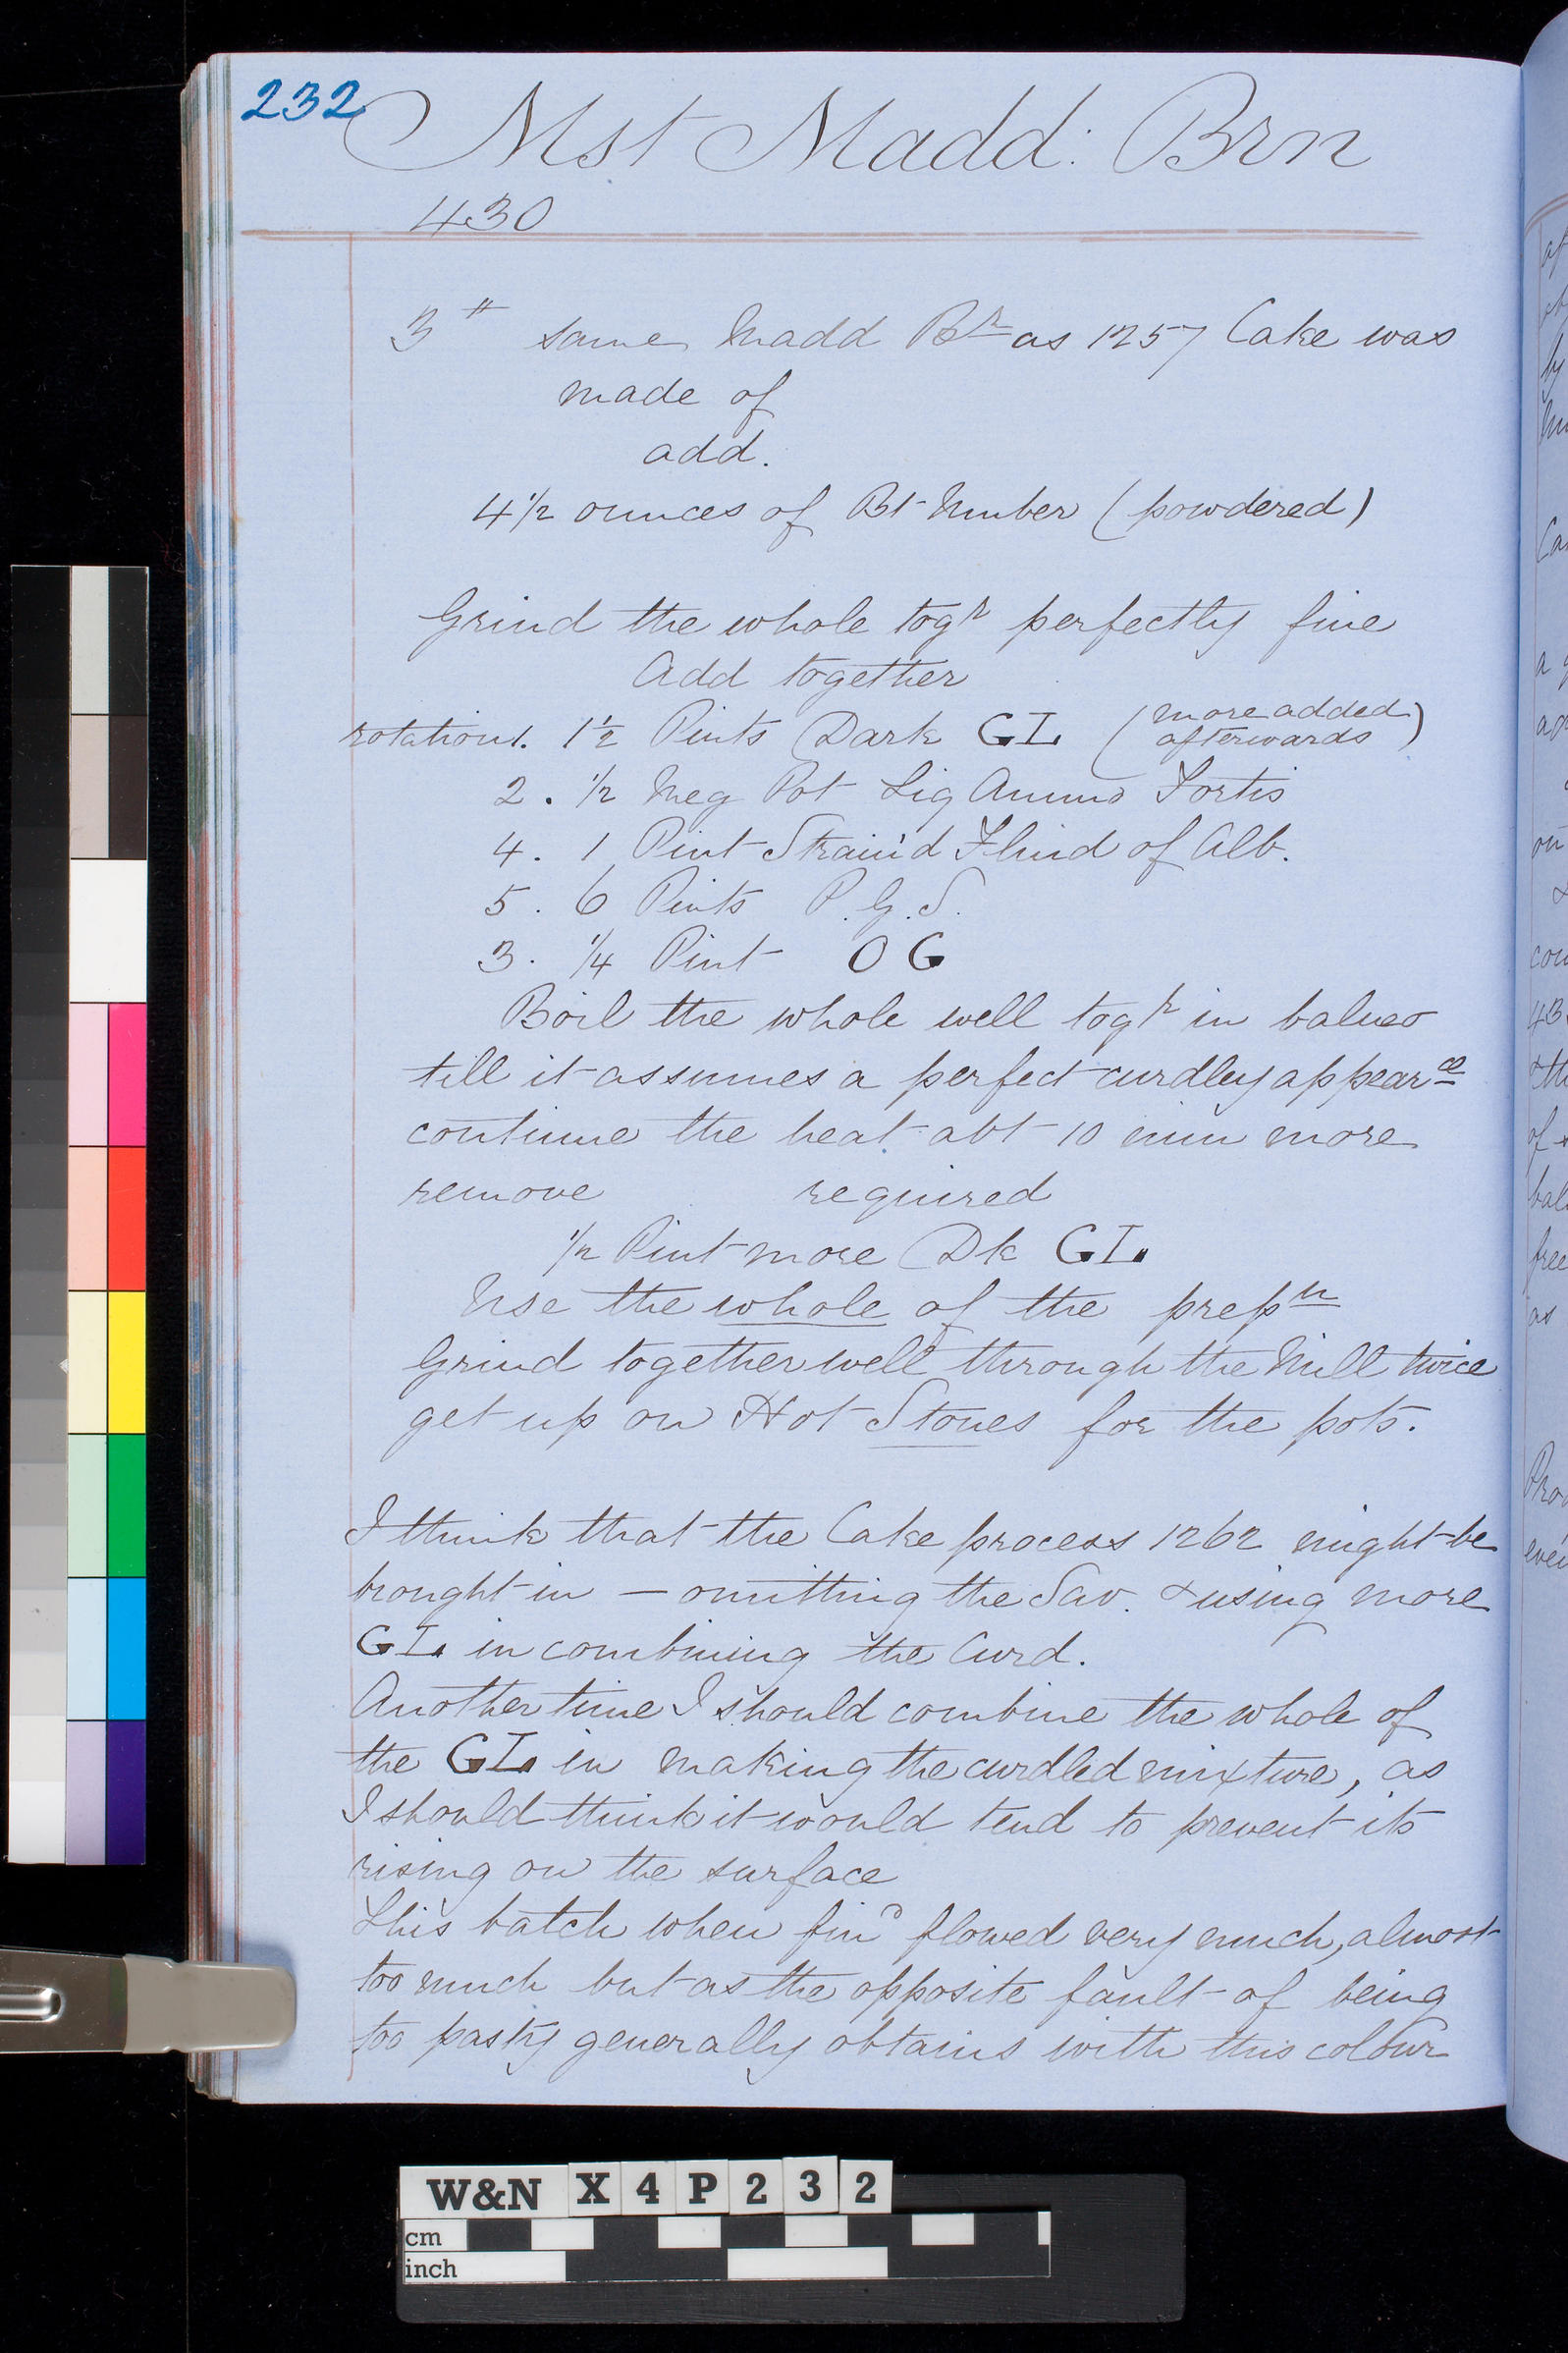 232
Mst Madd: Brn
430
3 # same Madd Br as 1257 Cake was
made of
add.
4 1/2 ounces of Bt Umber (powdered)
Grind the whole togr perfectly fine
Add together
rotation 1. 1 1/2 Pints Dark GL (more added
afterwards)
2. 1/2 Meg Pot Liq Ammo Fortis
4. 1 Pint Strain'd Fluid of Alb.
5. 6 Pints P.G.S.
3. 1/4 Pint OG
Boil the whole well togr in balneo
till it assumes a perfect curdley appearce
continue the heat abt 10 min more
remove required
1/2 Pint more Dk GL
Use the whole of the prepn
Grind together well through the Mill twice
get up on Hot Stones for the pots.
I think that the Cake process 1262 might be
brought in – omitting the Sav. & using more
GL in combining the Curd.
Another time I should combine the whole of
the GL in making the curdled mixture, as
I should think it would tend to prevent its
rising on the surface
This batch when find flowed very much, almost
too much but as the opposite fault of being
too pasty generally obtains with this colour
W&N X 4 P 2 3 2
cm
inch